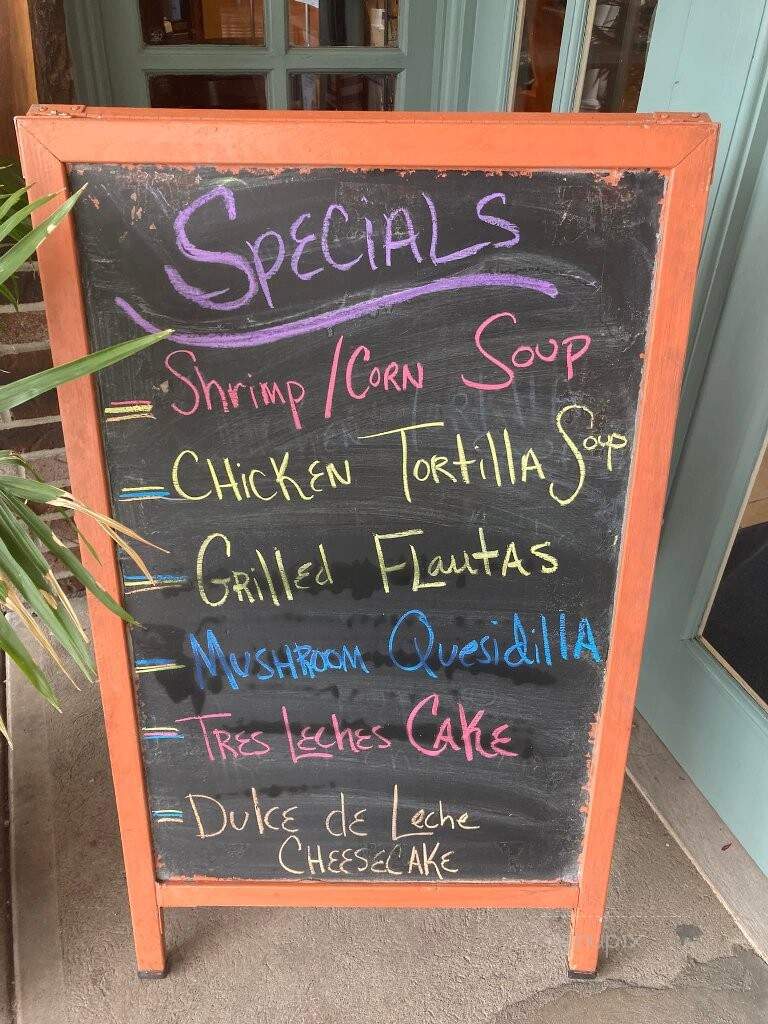 SPECiALS
Shrimp/CORN SOUP
CHiCKEN TORtillA Soup
GRilled FLautAS
MUSHROOM QuesidillA
TRES LECHES CAKE
DulcE de Leche
CHEESECAKE